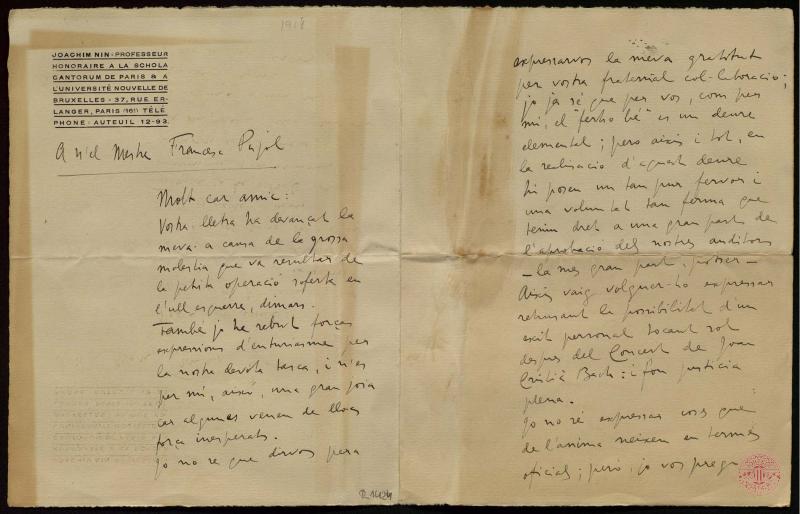 1918
JOACHIM NIN - PROFESSEUR
HONORAIRE A LA SCHOLA
CANTORUM DE PARIS & A
L'UNIVERSITÉ NOUVELLE DE
BRUXELLES - 37, RUE ER-
LANGER, PARIS (16e) TÉLÉ
PHONE : AUTEUIL 12-93.
A n'el Mestre Francesc Pujol
Molt car amic:
Vostra lletra ha devançat la
meva a causa de la grossa
molestia que va resultar de
la petita operació soferta en
l'ull esquerre, dimars.
També jo he rebut forças
expressions d'entusiasme per
la nostra devota tasca, i n'es
per mi, aixó, una gran joia
car algunes venen de llocs
força inesperats.
Jo no se que dirvos para
expressarvos la meva gratitut
per vostra fraternal col-laboració;
jo ja sé que per vos, com per
mi, el "ferho bé" es un deure
elemental; pero aixis i tot, en
la realisacio d'aquest deure
hi posem un tan pur fervor i
una voluntat tan ferma que
tenim dret a una gran part de
l'aprobació dels nostres auditors
- la mes gran part, potser -
Aixis vaig volguer-ho expressar
rehusant la possibilitat d'un
exit personal tocant sol
despres del Concert de Joan
Cristià Bach: i fou justicia
plena.
Jo no sé expressar coses que
de l'anima neixen en termes
oficials; peró, jo vos prego